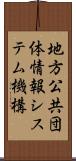 地方公共団
体情報シス
テム機構